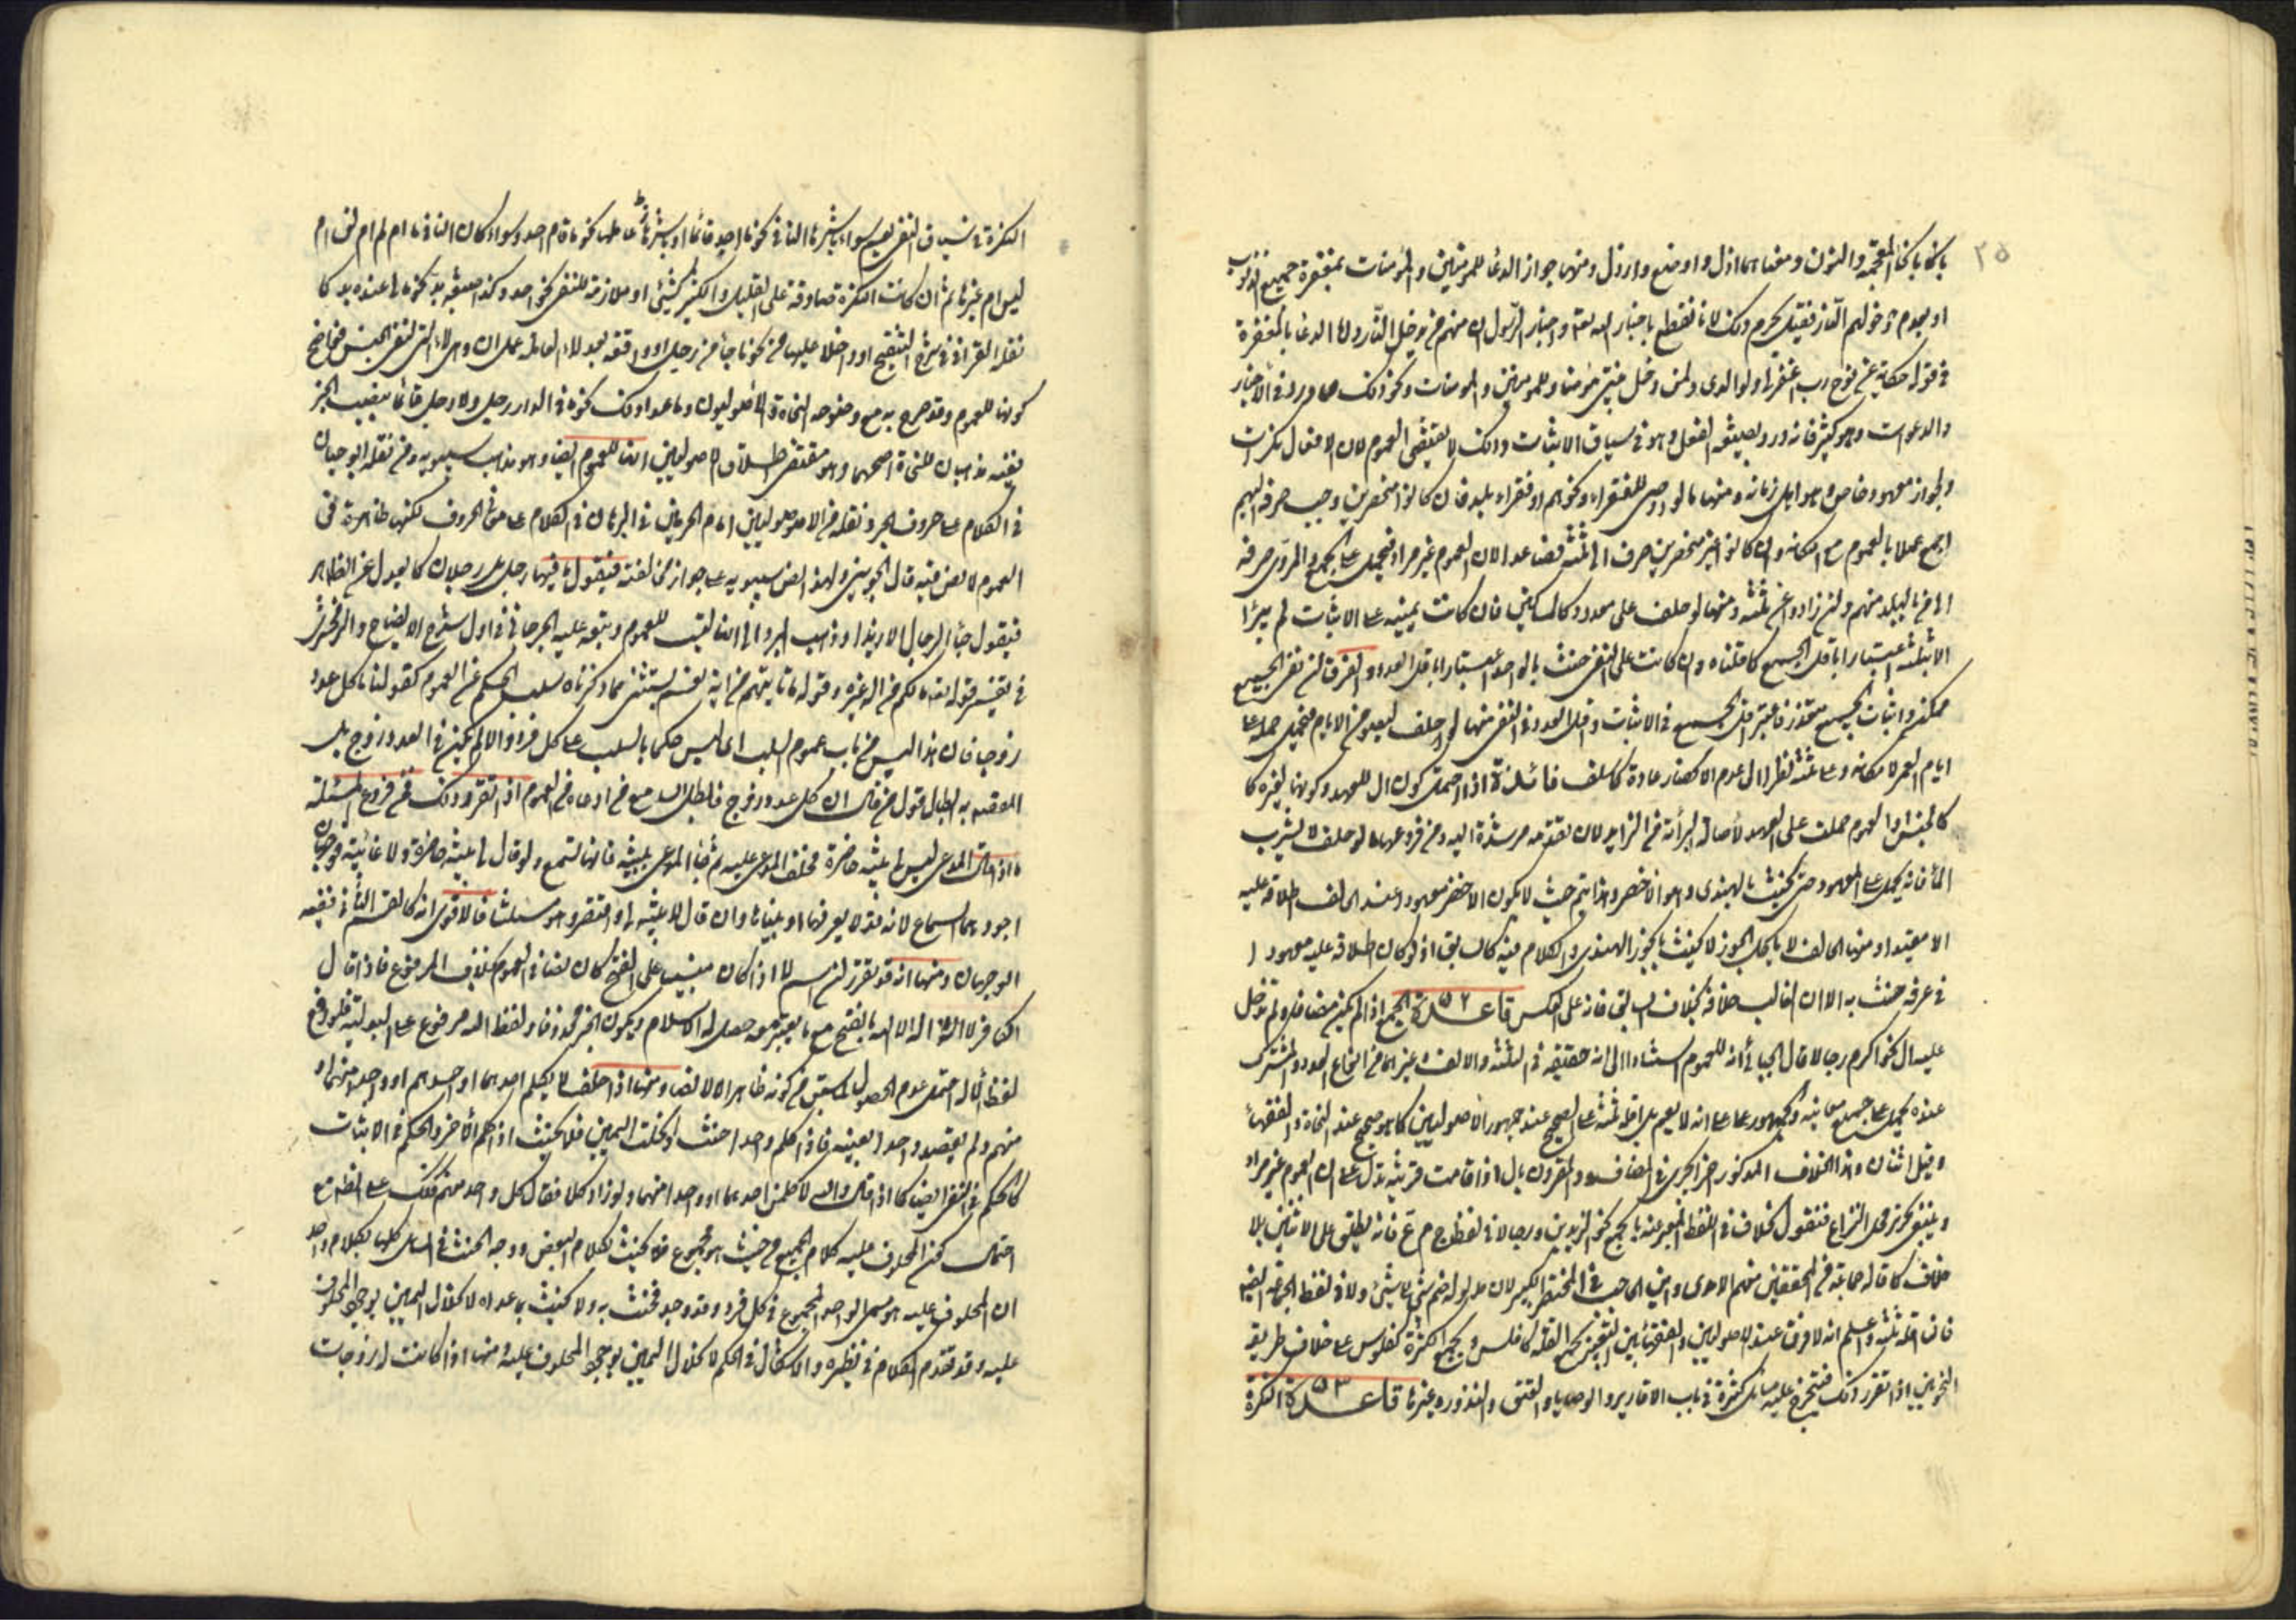 ٢٥
بالخاء المعجمة والنون ومعناهما اذل واوضع وارذل ومنها جواز الدعاء للمؤمنين والمؤمنات بمغفرة جميع الذنوب
او بعدم دخولهم النار فقيل يحرم ذلك لانا نقطع باخبار الله تعالى واخبار الرسول ان منهم من يدخل النار ولنا الدعاء بالمغفرة
في قوله حكاية عن نوح رب اغفر لي ولوالدي ولمن دخل بيتي مؤمنا وللمؤمنين والمؤمنات ونحو ذلك مما ورد في الاخبار
والدعوات وهو كثير فانه ورد بصيغة الفعل وهو في سياق الاثبات وذلك لا يقتضي العموم لان الافعال نكرات
ولجواز معهود خاص وهو اهل زمانه ومنها ما لو اوصى للفقراء ونحوهم او فقراء بلد فان كانوا منحصرين وجب صرفه اليهم
اجمع عملا بالعموم مع امكانه وان كانوا غير منحصرين صرف الى ثلثة فصاعدا لان العموم غير مراد فيحمل على الجمع والمروي صرفه
الى من بالبلد منهم وان زادوا عن ثلثة ومنها لو حلف على معدود كالمساكين فان كانت يمينه على الاثبات لم يبرأ
الا بثلثة اعتبارا باقل الجمع كما قلناه وان كانت على النفي حنث بالواحد اعتبارا باقل العدد والفرق ان نفي الجميع
ممكن واثبات الجميع متعذر فاعتبر اقل الجميع في الاثبات واقل العدد في النفي ومنها لو حلف ليصومن الايام فيحتمل حمله على
ايام العمر لامكانه وعلى ثلثة نظرا الى عدم الانحصار عادة كما سلف فائدة اذا احتمل كون ال للعهد وكونها لغيره كا
كالجنس او العموم حملت على العهد لاصالة البرائة من الزايد لان تقدمه مرشدة اليه ومن فروعها ما لو حلف لا يشرب
الماء فانه يحمل على المعهود حتى يحنث بالهندي وهو الاخضر وهذا يتم حيث لا يكون الاخضر معهودا عند الحالف اطلاقه عليه
الا مقيدا ومنها الحالف لا ياكل الجوز لا يحنث بالجوز الهندي والكلام فيه كالسابق اذ لو كان اطلاقه عليه معهودا
في عرفه حنث به الا ان الغالب خلافه بخلاف السابق فانه على العكس قاعدة ٥٢ الجمع اذا لم يكن مضافا ولم تدخل
عليه ال نحو اكرم رجالا قال الجبائي انه للعموم استنادا الى انه حقيقة في الثلثة والالف وغيرهما من انواع العدد والمشترك
عنده يحمل على جميع معانيه والجمهور على انه لا يعم بل اقله ثلثة على الصحيح عند جمهور الاصوليين كما هو صحيح عند النحاة والفقهاء
وقيل اثنان وهذا الخلاف المذكور اخيرا يجري في المضاف والمقرون بال اذا قامت قرينة تدل على ان العموم غير مراد
وينبغي تحرير محل النزاع فنقول الخلاف في اللفظ المعبر عنه بالجمع نحو الزيدين ورجال لا في لفظ ج م ع فانه يطلق على الاثنين بلا
خلاف كما قاله جماعة من المحققين منهم الامدي وابن الحاجب في المختصر الكبير لان مدلوله ضم شيء الى شيء ولا في لفظ الجماعة ايضا
فان اقله ثلثة واعلم انه لا فرق عند الاصوليين والفقهاء بين التعبير بجمع القلة كافلس وبجمع الكثرة كفلوس على خلاف طريقة
النحويين اذا تقرر ذلك فيتخرج عليه مسائل كثيرة في باب الاقارير والوصايا والعتق والنذور وغيرها قاعدة ٥٣ النكرة
النكرة في سياق النفي تعم سواء باشرها النافي نحو ما احد قائما او باشر عاملها نحو ما قام احد وسواء كان النافي ما ام لم ام لن ام
ليس ام غيرها ثم ان كانت النكرة صادقة على القليل والكثير كشيء او ملازمة للنفي نحو احد وكذا صيغة بد نحو ما لي عنه بد كا
نقله القرافي في شرح التنقيح او داخلا عليها من نحو ما جاء من رجل او واقعة بعد لا العاملة عمل ان وهي لا التي لنفي الجنس فواضح
كونها للعموم وقد صرح به مع وضوحه النحاة والاصوليون وما عدا ذلك نحو ما في الدار رجل ولا رجل قائما بنصب الخبر
ففيه مذهبان للنحاة اصحهما وهو مقتضى اطلاق الاصوليين انها للعموم ايضا وهو مذهب سيبويه وممن نقله ابو حيان
في الكلام على حروف الجر ونقله من الاصوليين امام الحرمين في البرهان في الكلام على معاني الحروف لكنها ظاهرة في
العموم لا نص فيه قال الجويني ولهذا نص سيبويه على جواز مخالفته فيقول ما فيها رجل بل رجلان كما يعدل عن الظاهر
فيقول جاء الرجال الا زيدا وذهب المبرد الى انها ليست للعموم وتبعه عليه الجرجاني في اول شرح الايضاح والزمخشري
في تفسير قوله تعالى ما لكم من اله غيره وقوله ما تاتيهم من اية نعم يستثنى مما ذكرناه سلب الحكم عن العموم كقولنا ما كل عدد
زوجا فان هذا ليس من باب عموم السلب اي ليس حكما بالسلب على كل فرد والا لم يكن في العدد زوج بل
المقصد به ابطال قول من قال ان كل عدد زوج فابطل السامع من ادعاه من العموم اذا تقرر ذلك فمن فروع المسئلة
ما اذا قال المدعي ليس لي بينة حاضرة فحلف المدعى عليه ثم جاء المدعي ببينة فانها تسمع ولو قال لا بينة حاضرة ولا غائبة فوجهان
اجودهما السماع لانه قد لا يعرفها او ينساها وان قال لا بينة لي واقتصر وهو مسئلتنا فالاقوى انه كالقسم الثاني ففيه
الوجهان ومنها انه قد تقرر ان اسم لا اذا كان مبنيا على الفتح كان نصا في العموم بخلاف المرفوع فاذا قال
الكافر لا اله الا الله بالفتح مع ما يعتبر معه حصل له الاسلام ويكون الخبر محذوفا ولفظ الله مرفوع على البدلية فلو رفع
لفظ اله احتمل عدم الحصول لما سبق من كونه ظاهرا لا نصا ومنها اذا حلف لا يكلم احدهما او احدهم او واحدا منهما او
منهم ولم يقصد واحدا بعينه فاذا كلم واحدا حنث وانحلت اليمين فلا يحنث اذا كلم الاخر والحكم في الاثبات
كالحكم في النفي ايضا كما اذا قال والله لاكلمن احدهما او واحدا منهما ولو زاد كلا فقال كل واحد منهم فكذلك على الظاهر مع
احتمال كون المحلوف عليه كلام الجميع من حيث هو مجموع فلا يحنث بكلام البعض ووجه الحنث في المسائل كلها بكلام واحد
ان المحلوف عليه هو مسمى الواحد المجموع في كل فرد وقد وجد فحنث به ولا يحنث بما عداه لانحلال اليمين بوجود المحلوف
عليه وقد تقدم الكلام في نظيره والاشكال في الحكم لانحلال اليمين بوجود المحلوف عليه ومنها اذا كانت له زوجات